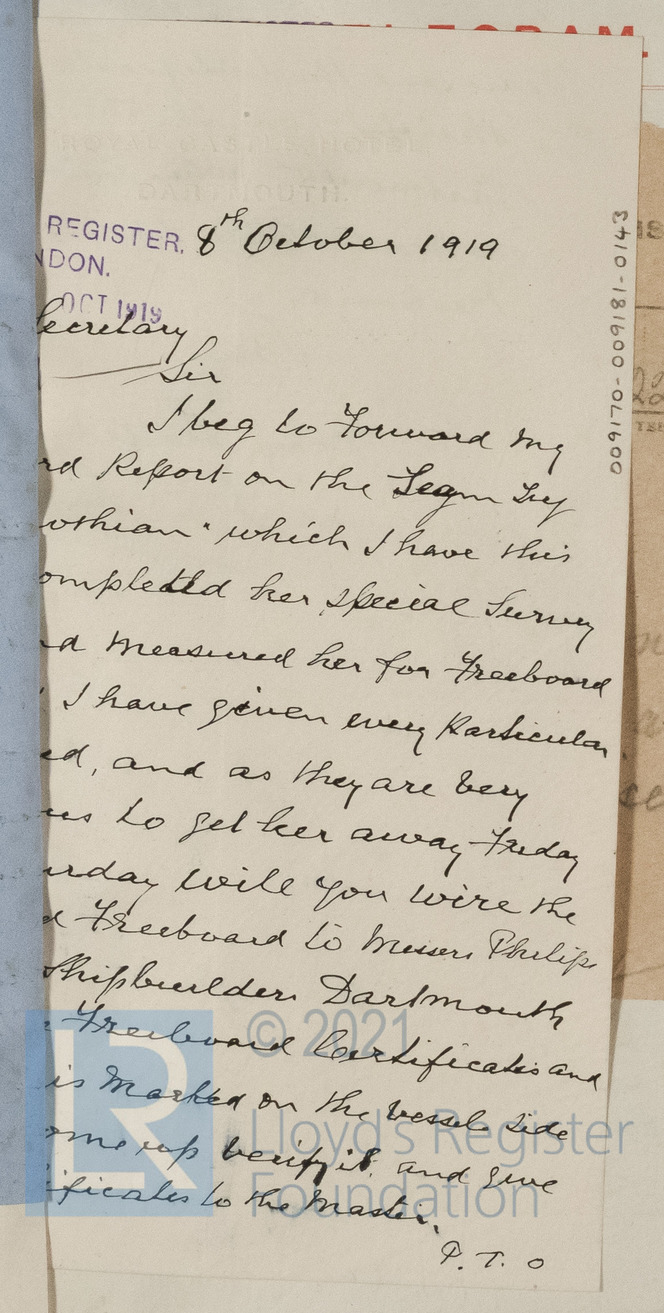 TELEGRAM.
REGISTER, 8th October 1919
NDON.
OCT 1919
Secretary
Sir
I beg to Forward my
rd Report on the
othian" which I have this
ompleted her special Survey
nd measured her for Freeboard
I have given every Particular
ed, and as they are very
us to get her away Friday
urday will you wire the
d Freeboard to Messrs Philips
Shipbuilders Dartmouth
Freeboard Certificates and
is marked on the vessels side
ome up verify it, and give
ificates to the Master.
P.T.O
009170-009181-0143
© 2021
Lloyd's Register
Foundation
LR